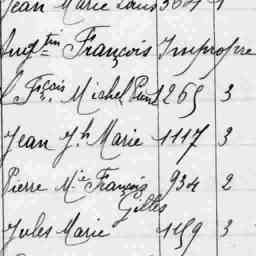 Jean Marie Louis 3604 1
Aug tin François Impropre
Fçois Michel 1265 3
Jean Jh Marie 1117 3
Pierre Mie François 934 2
Gilles
Jules Marie 1159 3